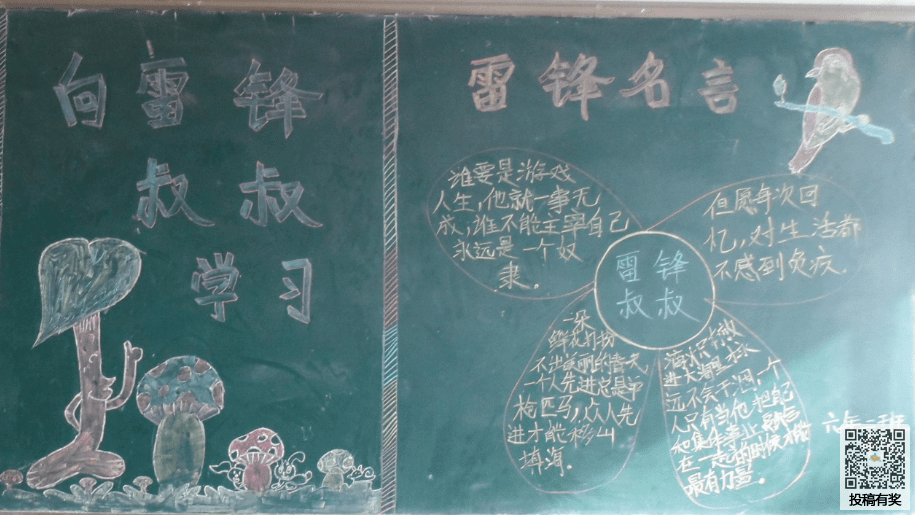 向雷锋
叔叔
学习
雷锋名言
谁要是游戏
人生,他就一事无
成,谁不能主宰自己
永远是一个奴
隶.
但愿每次回
忆,对生活都
不感到负疚.
雷锋
叔叔
一朵
鲜花打扮
不出美丽的春天
一个人先进总是单
枪匹马,众人先
进才能移山
填海.
进大海里永
远不会干涸,一个
人只有当他把自己
和集体事业融合
在一起的时候才能
最有力量.
六年一班
投稿有奖